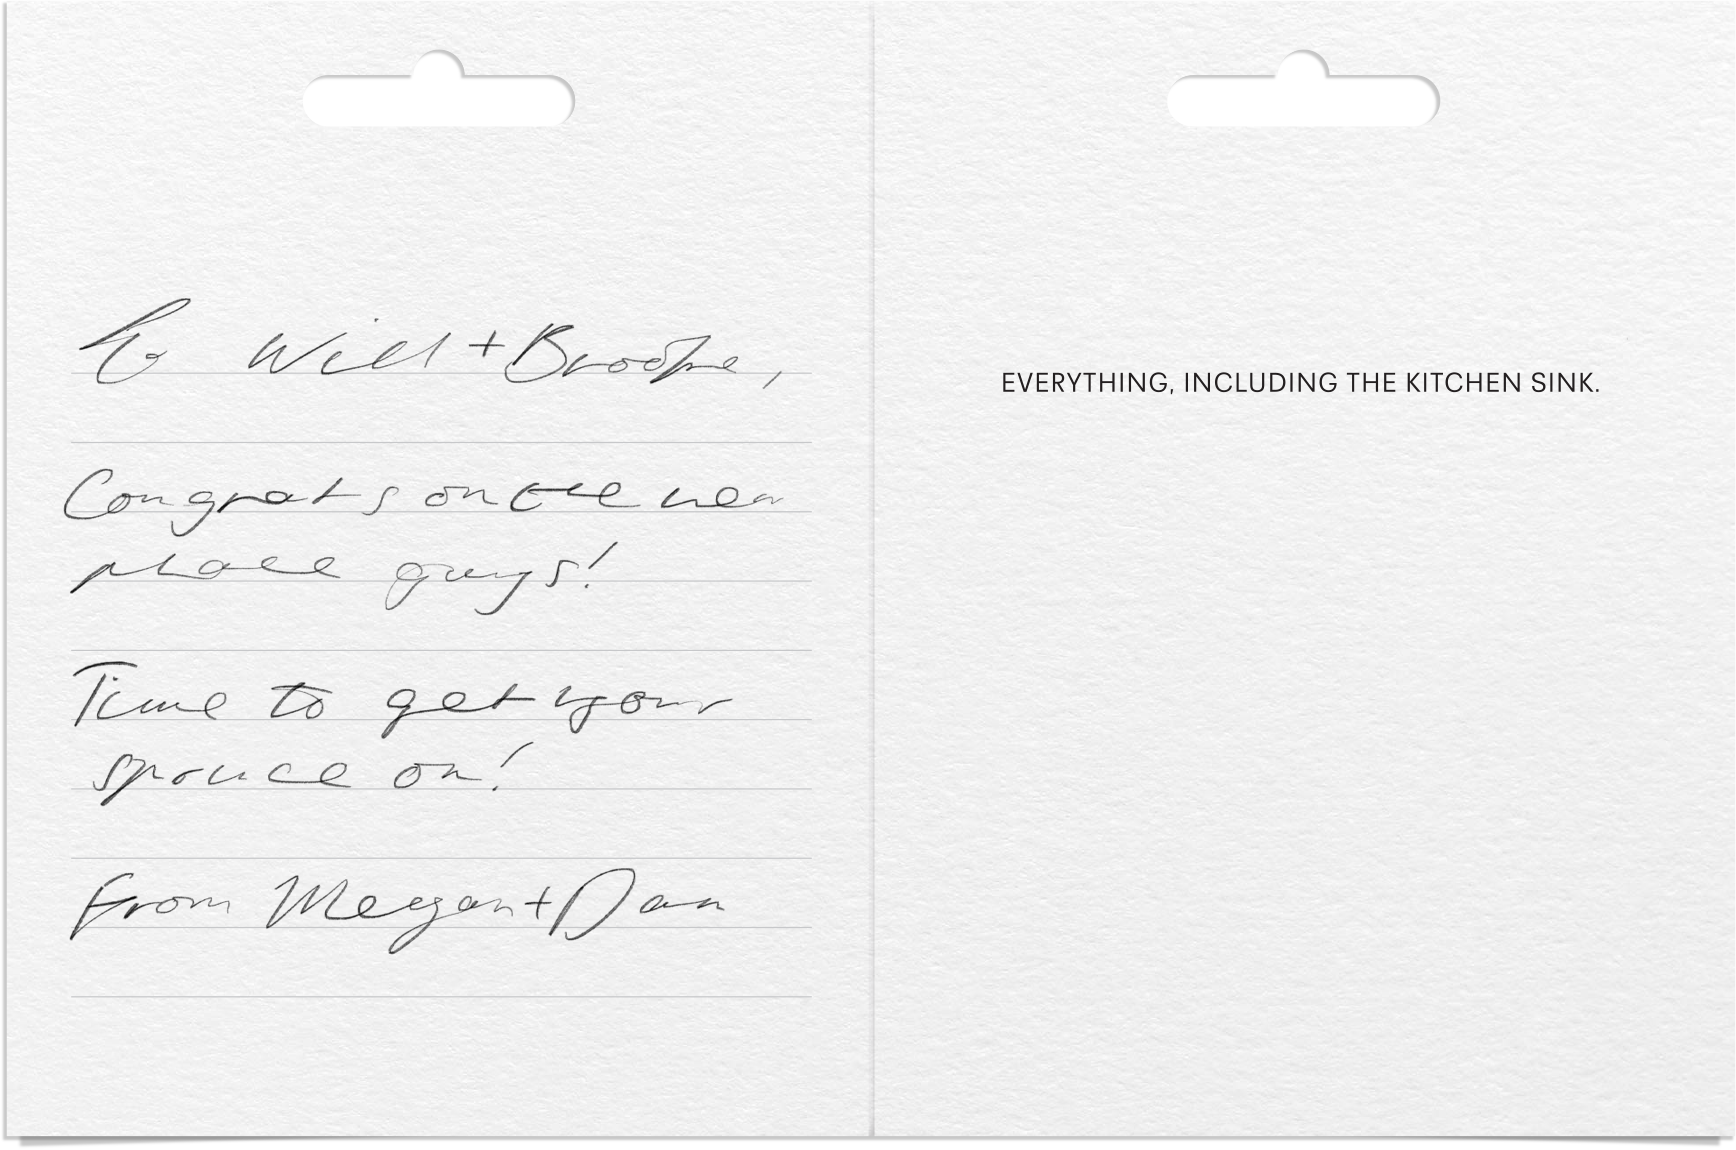 To Will + Brooke,
Congrats on the new
place guys!
Time to get your
spruce on!
From Megan + Dan
EVERYTHING, INCLUDING THE KITCHEN SINK.